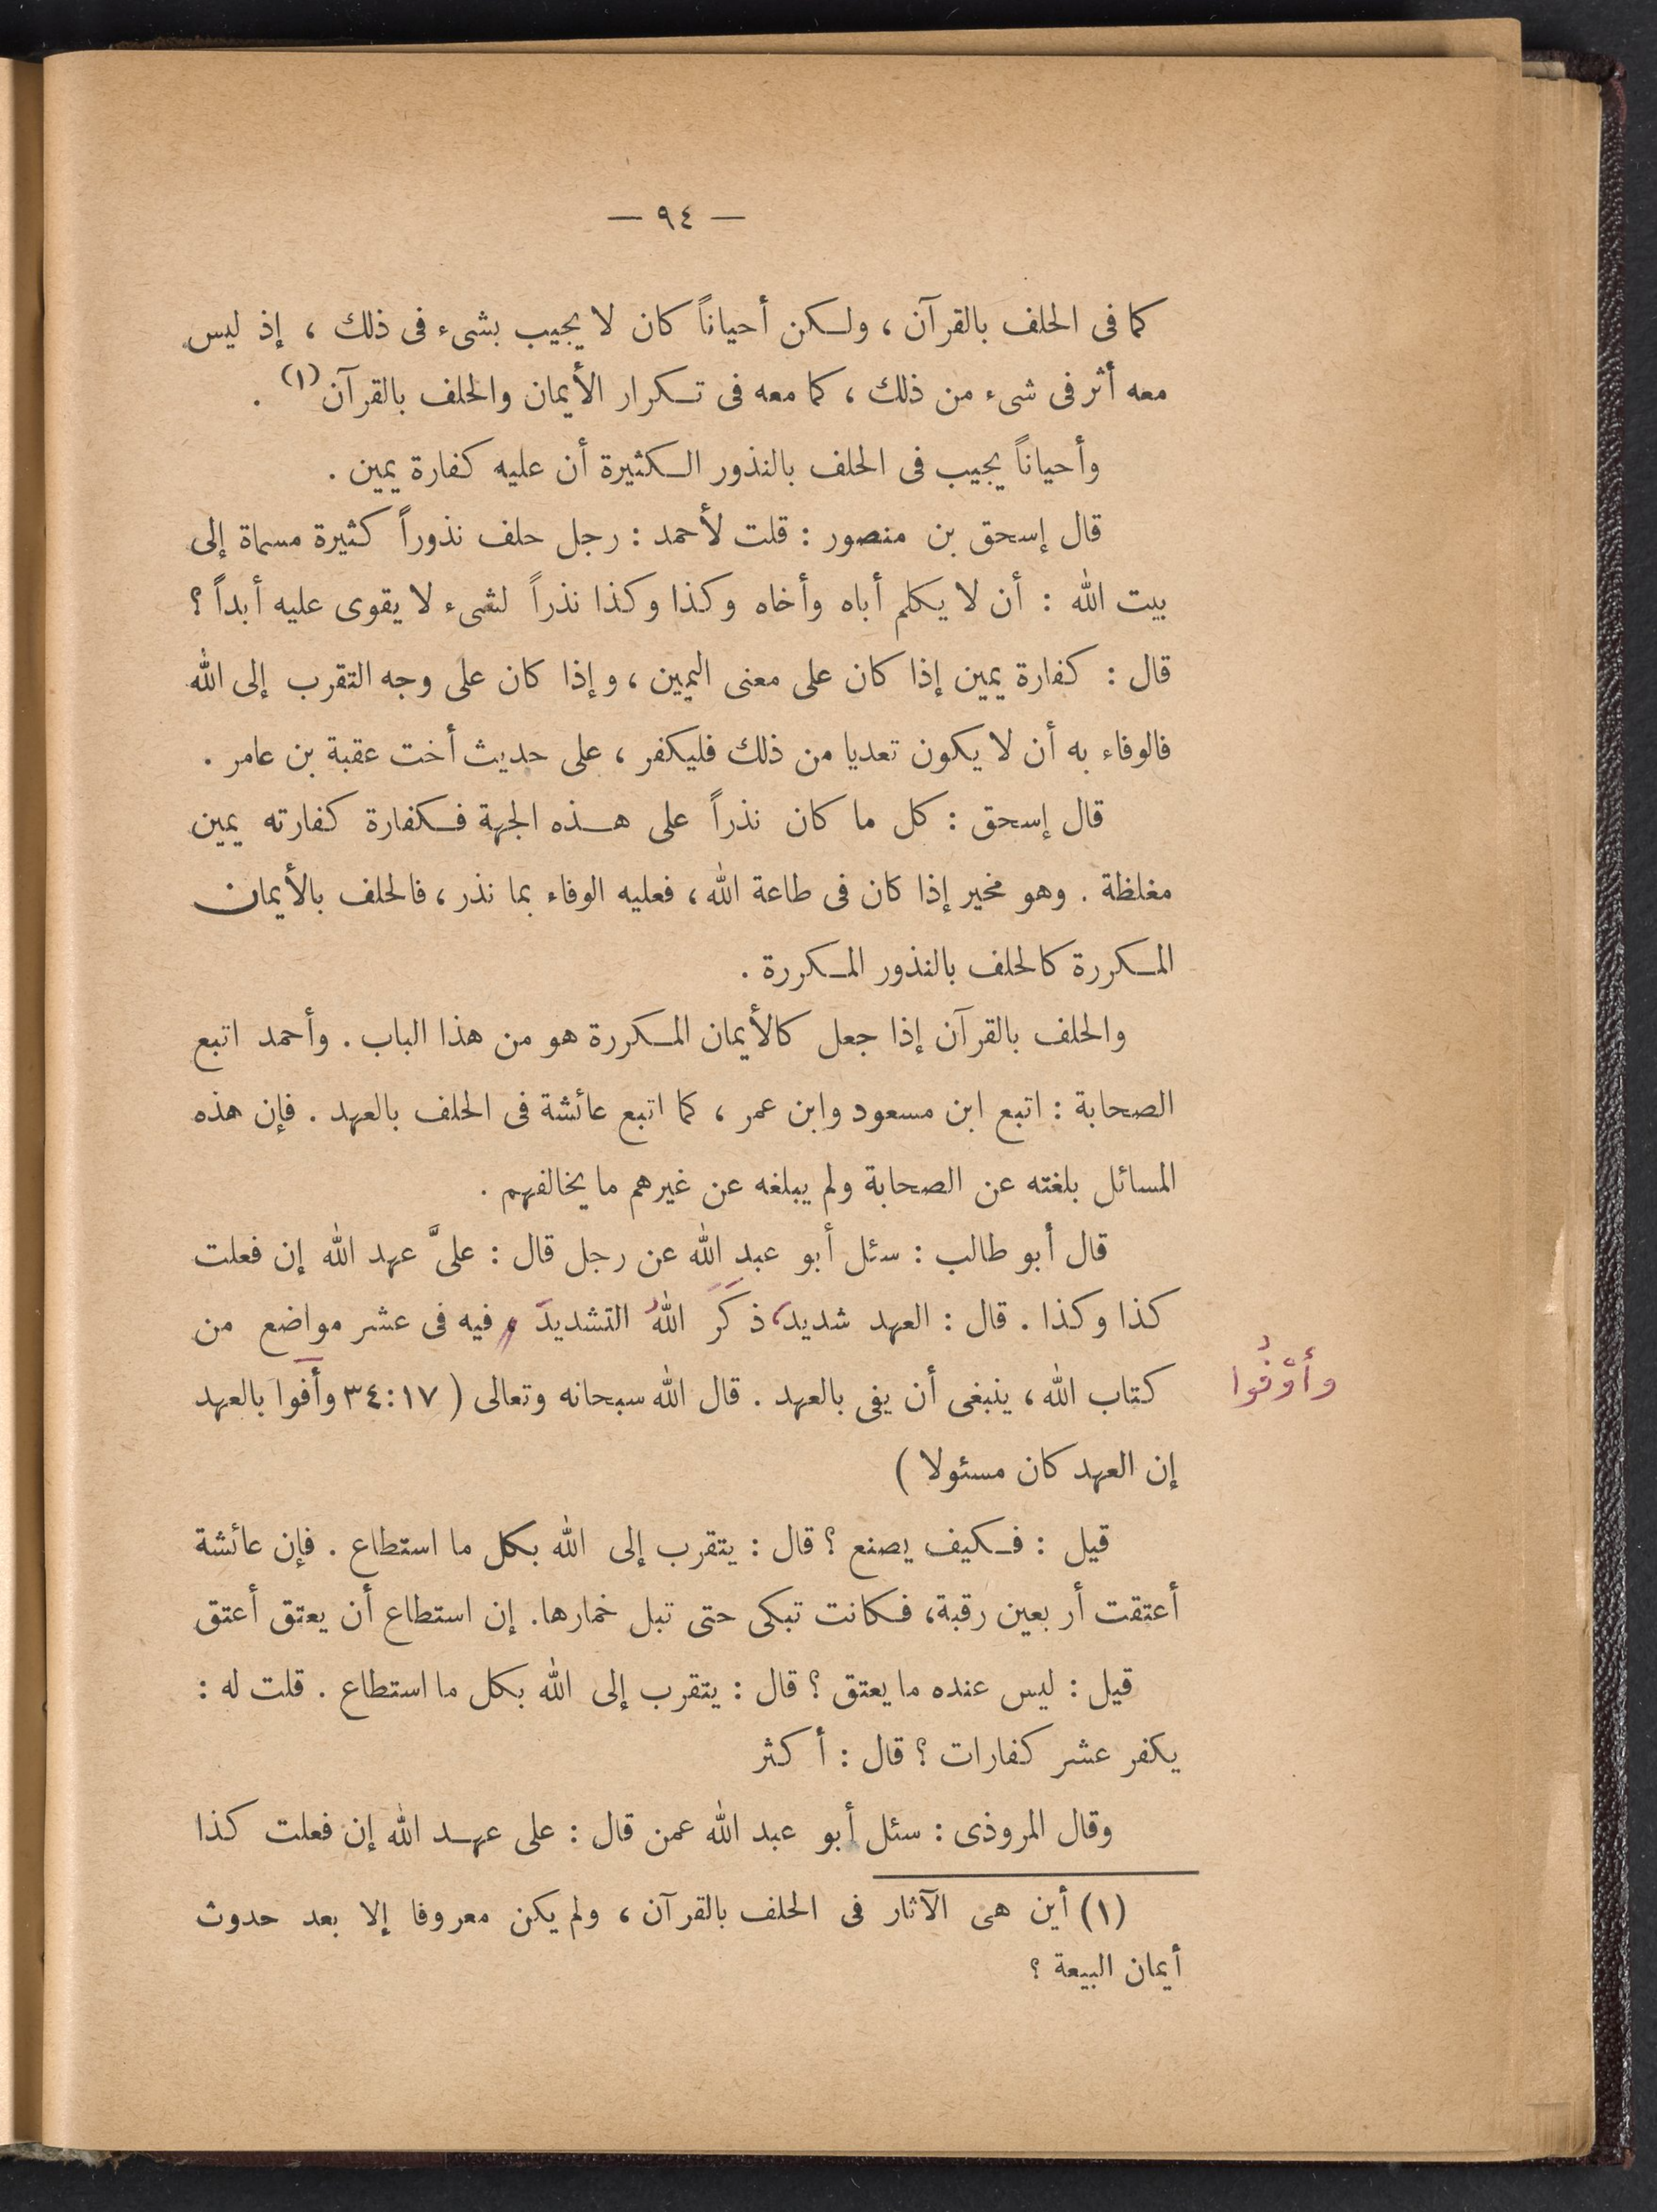 — ٩٤ —
كما فى الحلف بالقرآن ، ولكن أحياناً كان لا يجيب بشىء فى ذلك ، إذ ليس
معه أثر فى شىء من ذلك ، كما معه فى تكرار الأيمان والحلف بالقرآن (١) .
وأحياناً يجيب فى الحلف بالنذور الكثيرة أن عليه كفارة يمين .
قال إسحق بن منصور : قلت لأحمد : رجل حلف نذوراً كثيرة مسماة إلى
بيت الله : أن لا يكلم أباه وأخاه وكذا وكذا نذراً لشىء لا يقوى عليه أبداً ؟
قال : كفارة يمين إذا كان على معنى اليمين ، وإذا كان على وجه التقرب إلى الله
فالوفاء به أن لا يكون تعديا من ذلك فليكفر ، على حديث أخت عقبة بن عامر .
قال إسحق : كل ما كان نذراً على هذه الجهة فكفارة كفارته يمين
مغلظة . وهو مخير إذا كان فى طاعة الله ، فعليه الوفاء بما نذر ، فالحلف بالأيمان
المكررة كالحلف بالنذور المكررة .
والحلف بالقرآن إذا جعل كالأيمان المكررة هو من هذا الباب . وأحمد اتبع
الصحابة : اتبع ابن مسعود وابن عمر ، كما اتبع عائشة فى الحلف بالعهد . فإن هذه
المسائل بلغته عن الصحابة ولم يبلغه عن غيرهم ما يخالفهم .
قال أبو طالب : سئل أبو عبد الله عن رجل قال : علىَّ عهد الله إن فعلت
كذا وكذا . قال : العهد شديد، ذَكَرَ اللهُ التشديدَ فيه فى عشر مواضع من
كتاب الله ، ينبغى أن يفى بالعهد . قال الله سبحانه وتعالى ( ٣٤:١٧ وأفوا بالعهد
وأوْفُوا
إن العهد كان مسئولا )
قيل : فكيف يصنع ؟ قال : يتقرب إلى الله بكل ما استطاع . فإن عائشة
أعتقت أربعين رقبة، فكانت تبكى حتى تبل خمارها. إن استطاع أن يعتق أعتق
قيل : ليس عنده ما يعتق ؟ قال : يتقرب إلى الله بكل ما استطاع . قلت له :
يكفر عشر كفارات ؟ قال : أكثر
وقال المروذى : سئل أبو عبد الله عمن قال : على عهد الله إن فعلت كذا
(١) أين هى الآثار فى الحلف بالقرآن ، ولم يكن معروفا إلا بعد حدوث
أيمان البيعة ؟